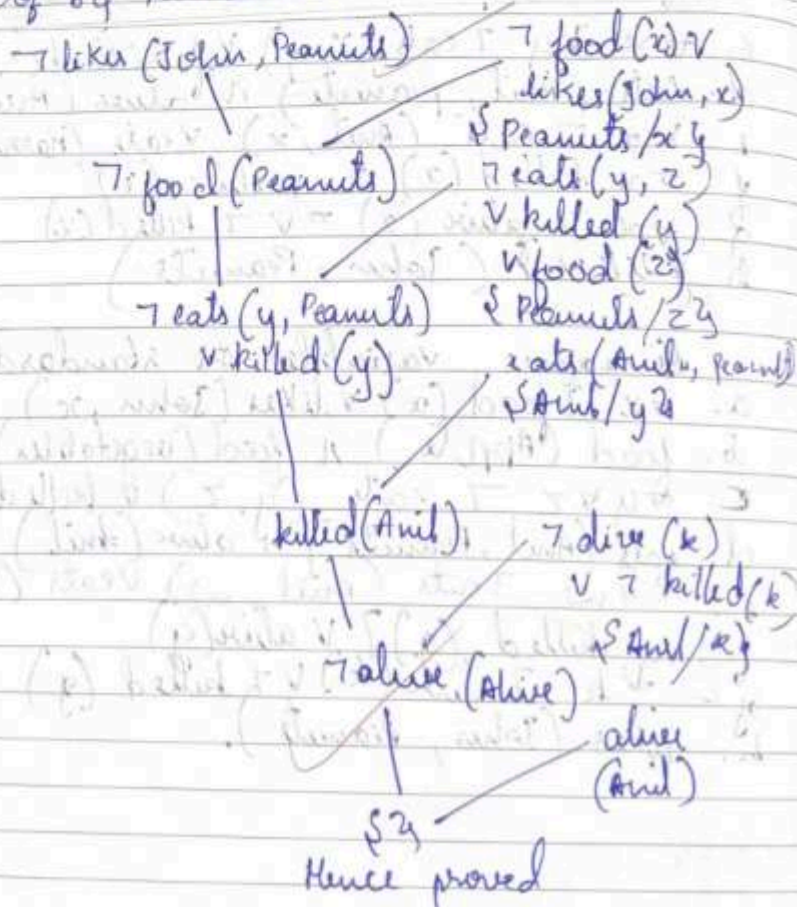 ¬ likes (John, Peanuts)
¬ food (x) V
likes (John, x)
{Peanuts/x}
¬ food (Peanuts)
¬ eats (y, z)
V killed (y)
V food (z)
{Peanuts/z}
¬ eats (y, Peanuts)
V killed (y)
eats (Anil, Peanuts)
{Anil/y}
killed (Anil)
¬ alive (k)
V ¬ killed (k)
{Anil/k}
¬ alive (Alive)
alive
(Anil)
{}
Hence proved